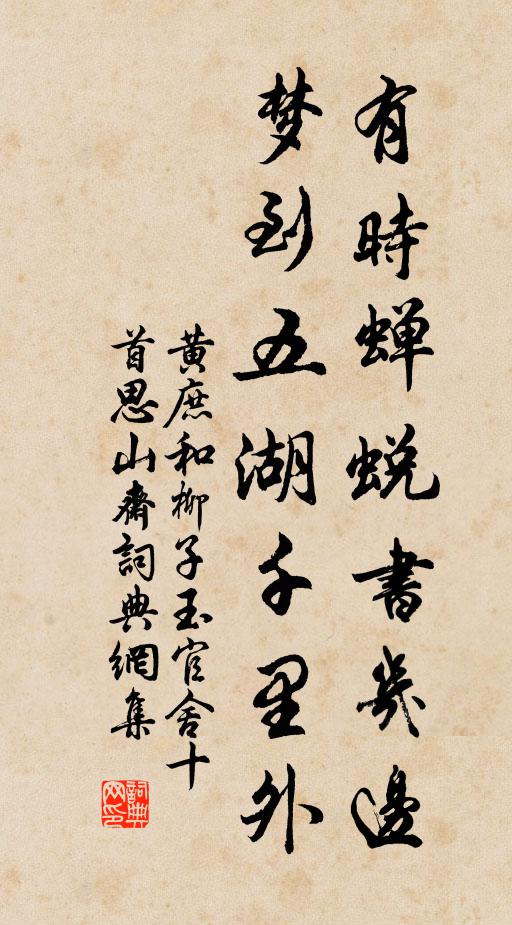 有時蝉蜕書幾邊
梦到五湖千里外
黄庶和柳子玉官舍十
首思山齋詞典網集
詞典
网印